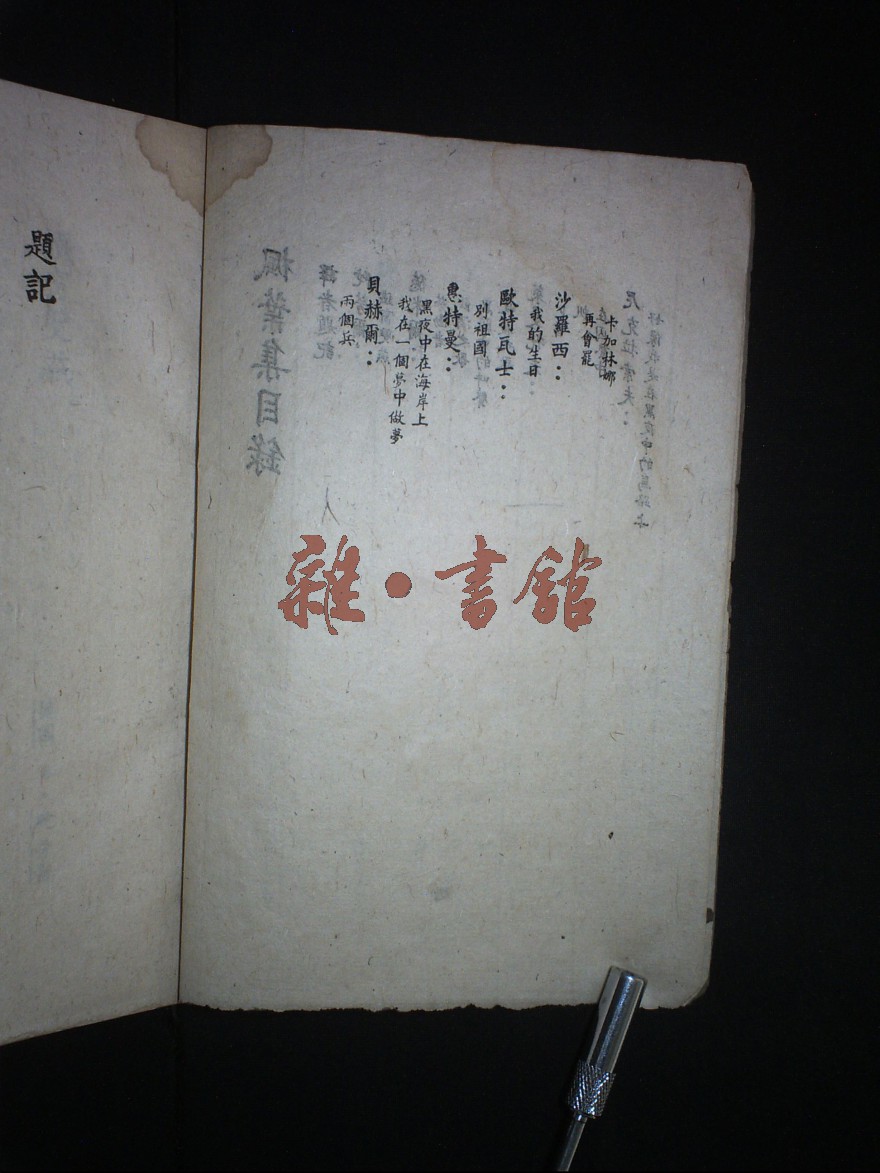 卡加林娜
再會罷
沙羅西：
我的生日
歐特瓦士：
別祖國
惠特曼：
黑夜中在海岸上
我在一個夢中做夢
貝赫爾：
兩個兵
題記
雜·書館